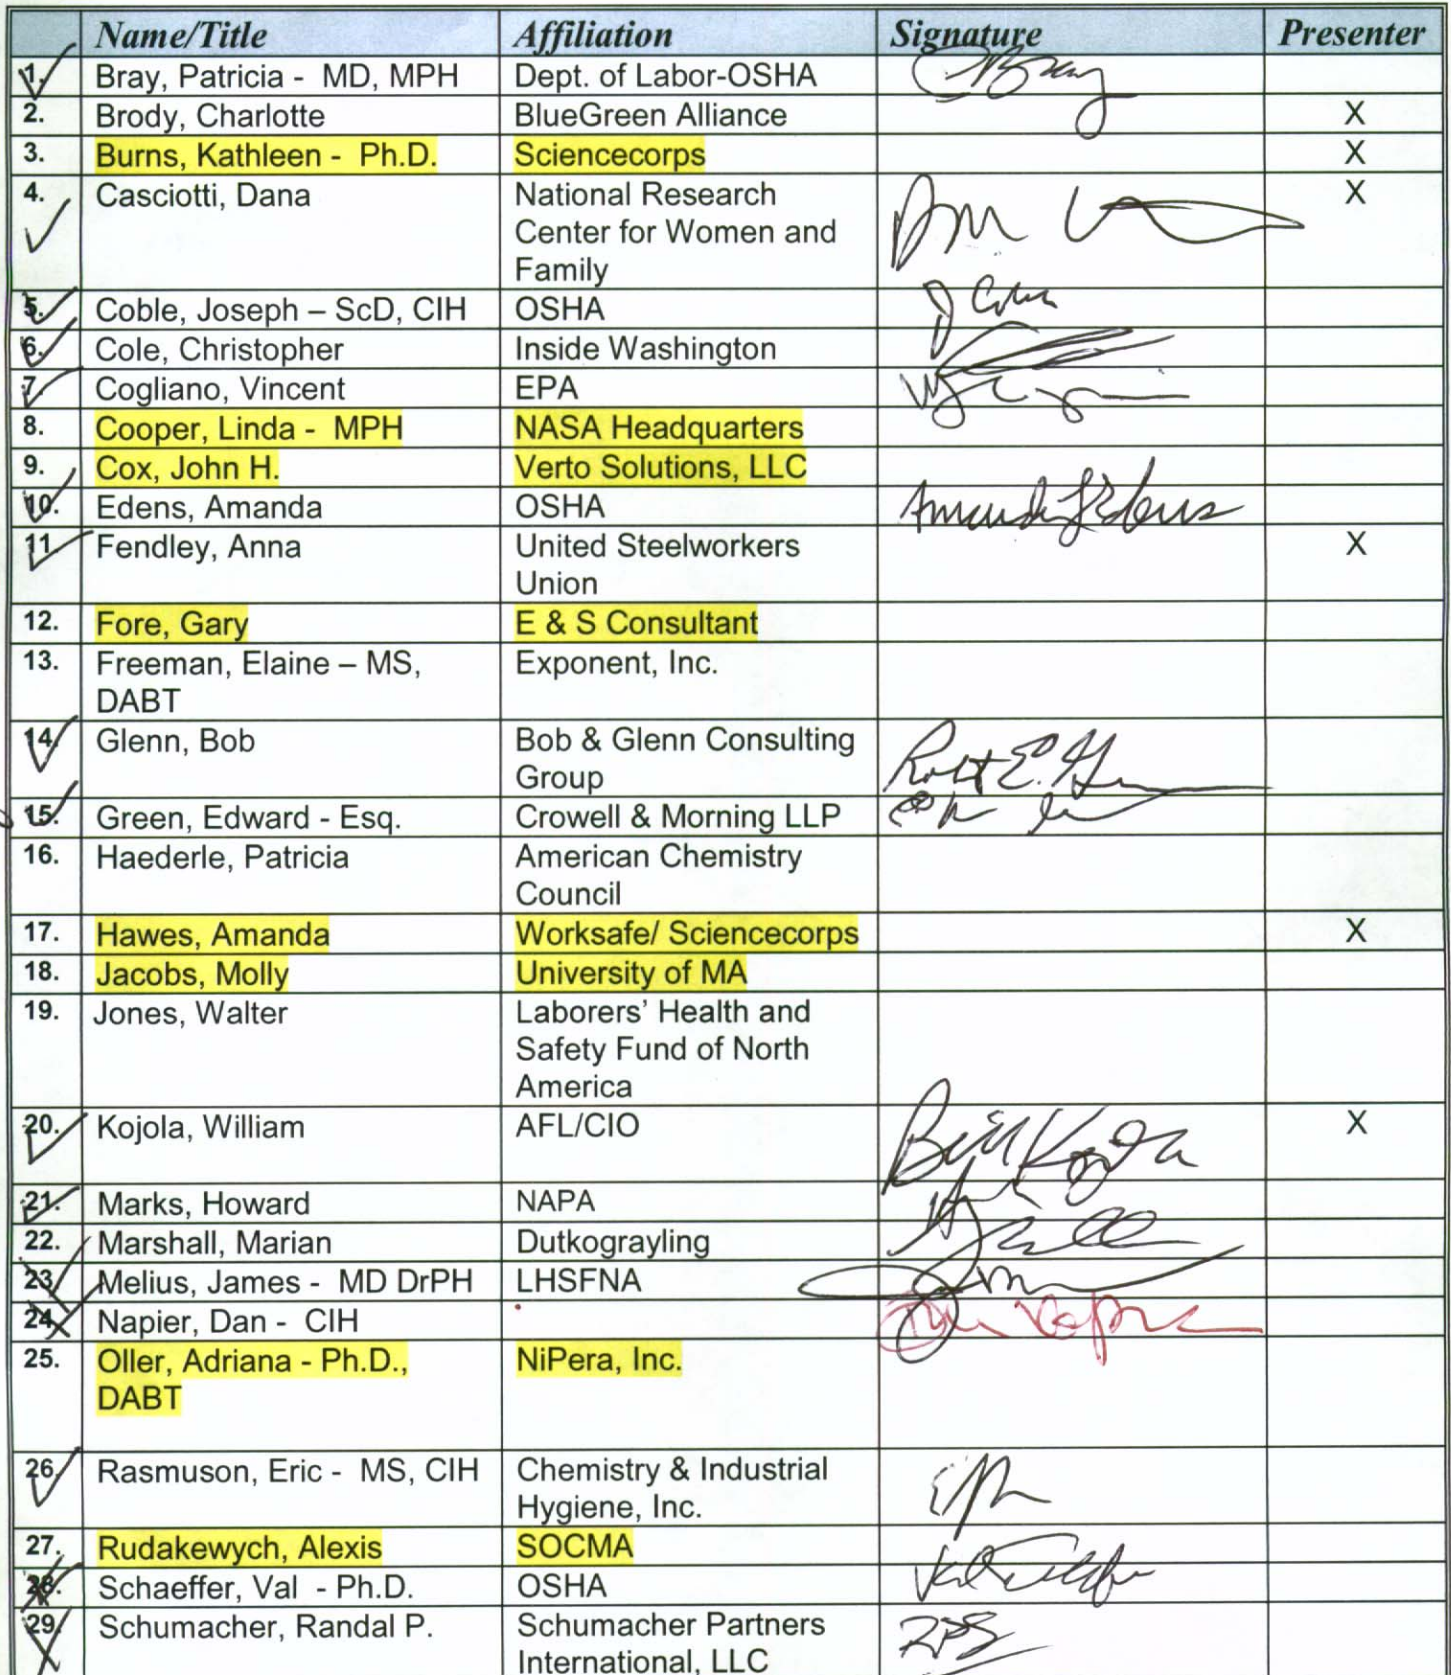 Name/Title Affiliation Signature Presenter
1. Bray, Patricia - MD, MPH Dept. of Labor-OSHA
2. Brody, Charlotte BlueGreen Alliance X
3. Burns, Kathleen - Ph.D. Sciencecorps X
4. Casciotti, Dana National Research X
Center for Women and
Family
5. Coble, Joseph – ScD, CIH OSHA
6. Cole, Christopher Inside Washington
7. Cogliano, Vincent EPA
8. Cooper, Linda - MPH NASA Headquarters
9. Cox, John H. Verto Solutions, LLC
10. Edens, Amanda OSHA
11 Fendley, Anna United Steelworkers X
Union
12. Fore, Gary E & S Consultant
13. Freeman, Elaine – MS, Exponent, Inc.
DABT
14. Glenn, Bob Bob & Glenn Consulting
Group
15. Green, Edward - Esq. Crowell & Morning LLP
16. Haederle, Patricia American Chemistry
Council
17. Hawes, Amanda Worksafe/ Sciencecorps X
18. Jacobs, Molly University of MA
19. Jones, Walter Laborers’ Health and
Safety Fund of North
America
20. Kojola, William AFL/CIO Bill Kojola X
21. Marks, Howard NAPA
22. Marshall, Marian Dutkograyling
23. Melius, James - MD DrPH LHSFNA
24. Napier, Dan - CIH
25. Oller, Adriana - Ph.D., NiPera, Inc.
DABT
26. Rasmuson, Eric - MS, CIH Chemistry & Industrial
Hygiene, Inc.
27. Rudakewych, Alexis SOCMA
28. Schaeffer, Val - Ph.D. OSHA
29. Schumacher, Randal P. Schumacher Partners RPS
International, LLC